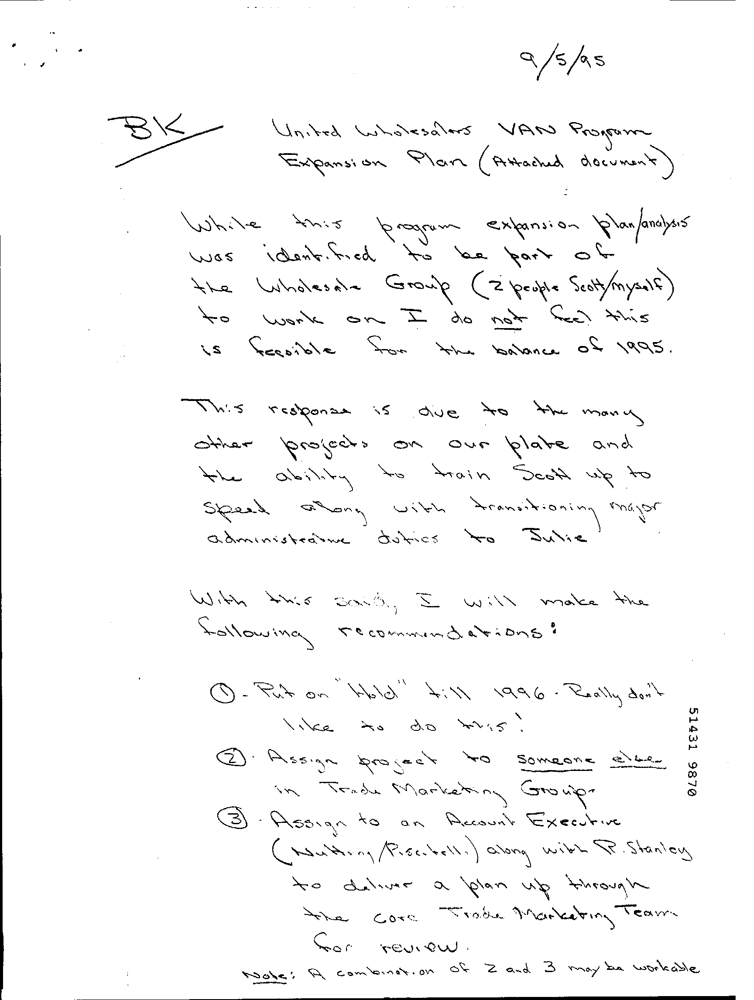 9/5/95
BK United Wholesalers VAN Program
Expansion Plan (Attached document)
While this program expansion plan/analysis
was identified to be part of
the Wholesale Group (2 people Scott/myself)
to work on I do not feel this
is feasible for the balance of 1995.
This response is due to the many
other projects on our plate and
the ability to train Scott up to
speed along with transitioning major
administrative duties to Julie
With this said, I will make the
following recommendations:
① - Put on "Hold" till 1996 - Really don't
like to do this!
② - Assign project to someone else
in Trade Marketing Group.
③ - Assign to an Account Executive
(Nutting/Piscitelli) along with P. Stanley
to deliver a plan up through
the core Trade Marketing Team
for review.
Note: A combination of 2 and 3 may be workable
51431 9870